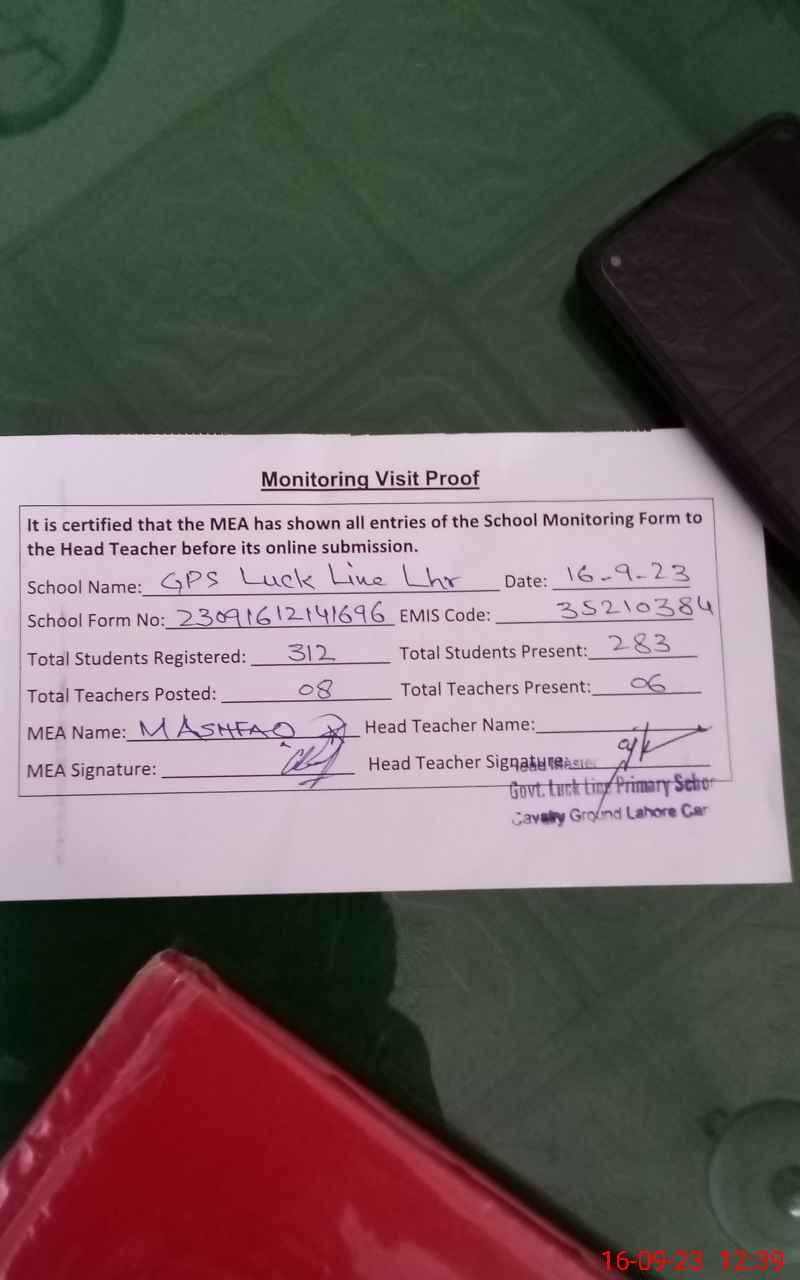 Monitoring Visit Proof
It is certified that the MEA has shown all entries of the School Monitoring Form to
the Head Teacher before its online submission.
School Name: GPS Luck Line Lhr Date: 16-9-23
School Form No: 23091612141696 EMIS Code: 35210384
Total Students Registered: 312 Total Students Present: 283
Total Teachers Posted: 08 Total Teachers Present: 06
MEA Name: MASHFAQ Head Teacher Name:
MEA Signature: Head Teacher Signature:
Govt. Luck Line Primary Schor
Cavalry Ground Lahore Car
16-09-23 12:39